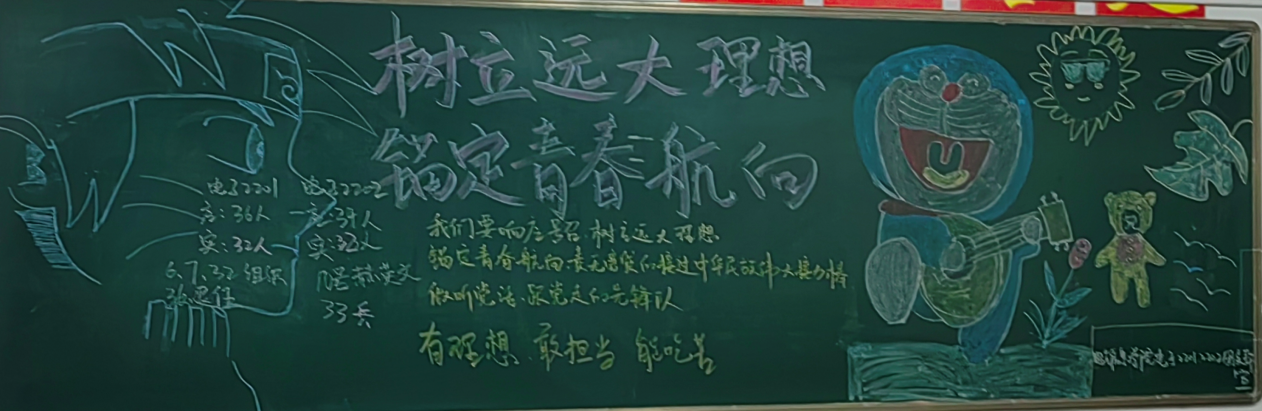 树立远大理想
锚定青春航向
电子2201
应:36人
实:32人
6.7.32 组织
张思任
电子2202
应:34人
实:32人
33兵
我们要响应号召 树立远大理想
锚定青春航向 责无旁贷的接过中华民族伟大接力棒
做听党话、跟党走的先锋队
有理想 敢担当 能吃苦
学院电子2201 2202团支部